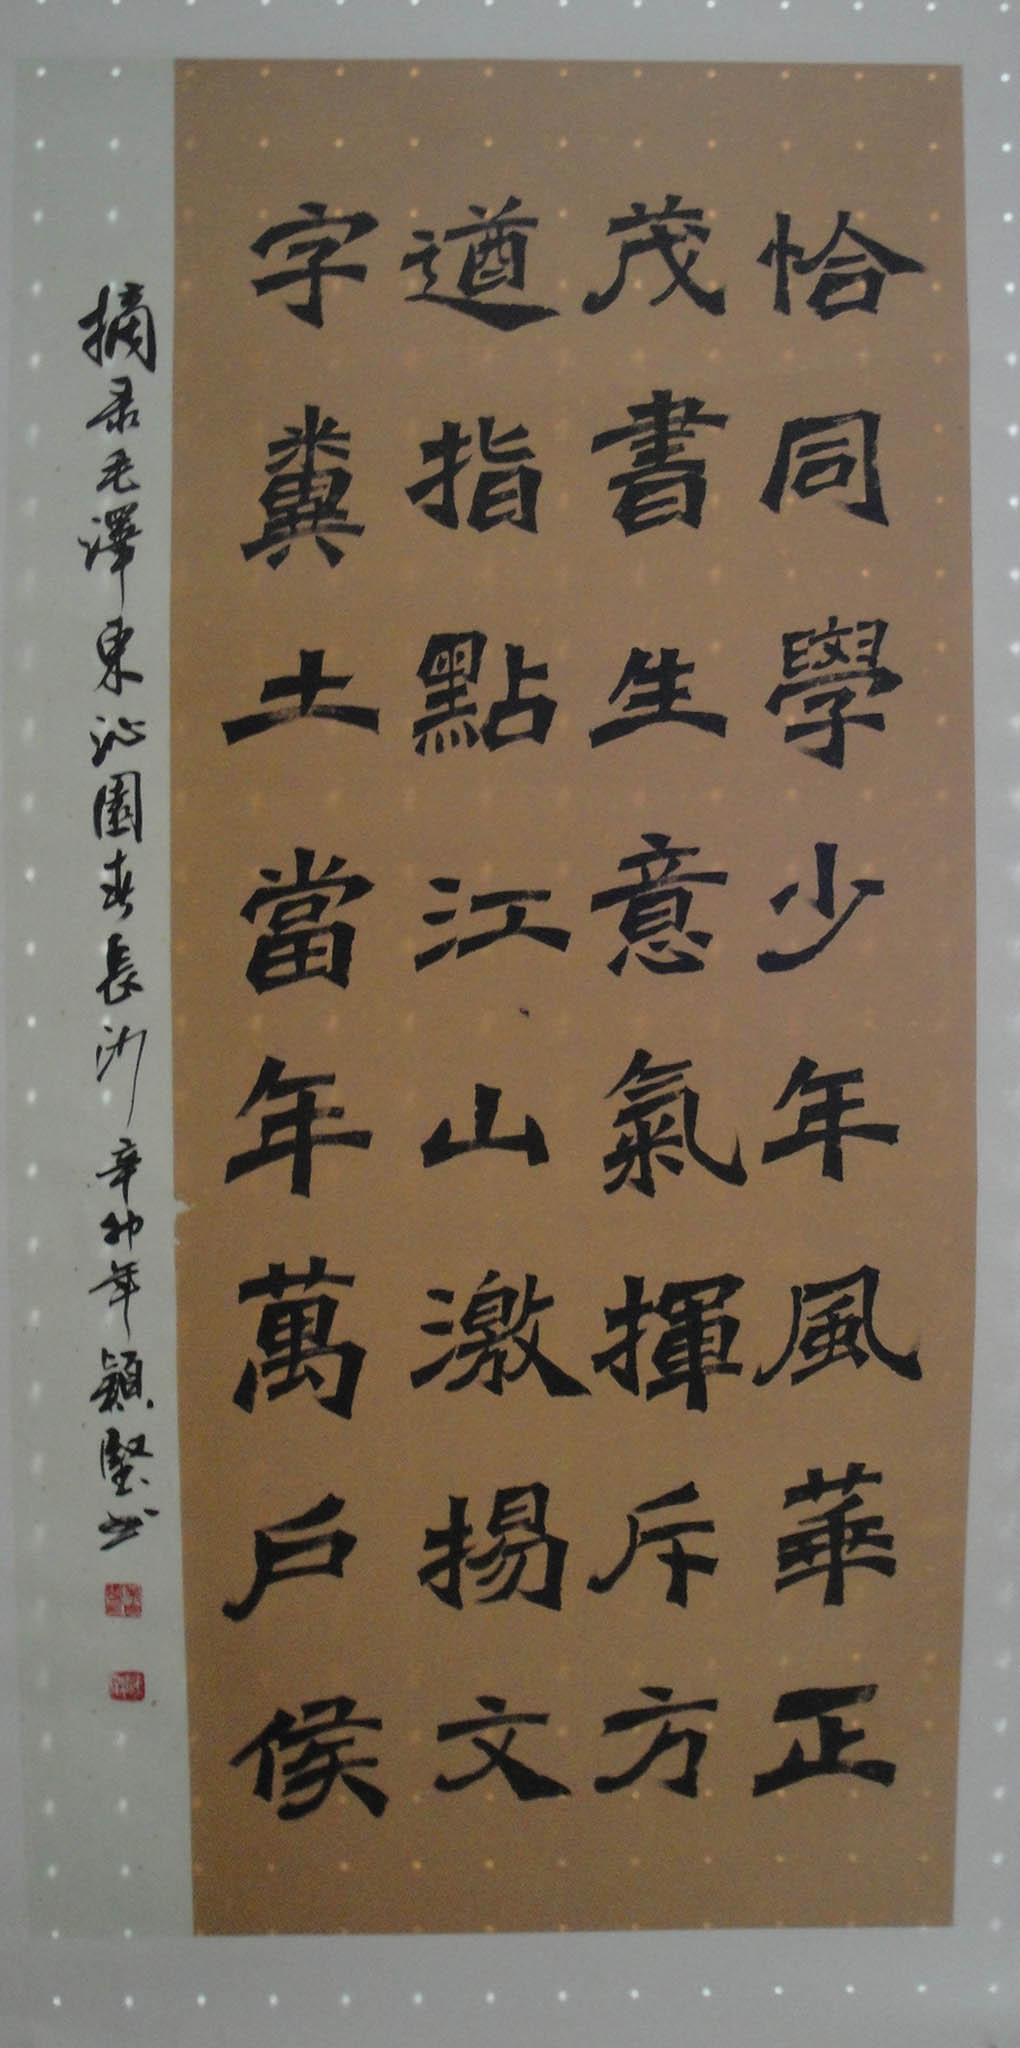 恰同學少年風華正
茂書生意氣揮斥方
遒指點江山激揚文
字糞土當年萬戶侯
摘录毛澤東沁園春長沙辛卯年穎堅书